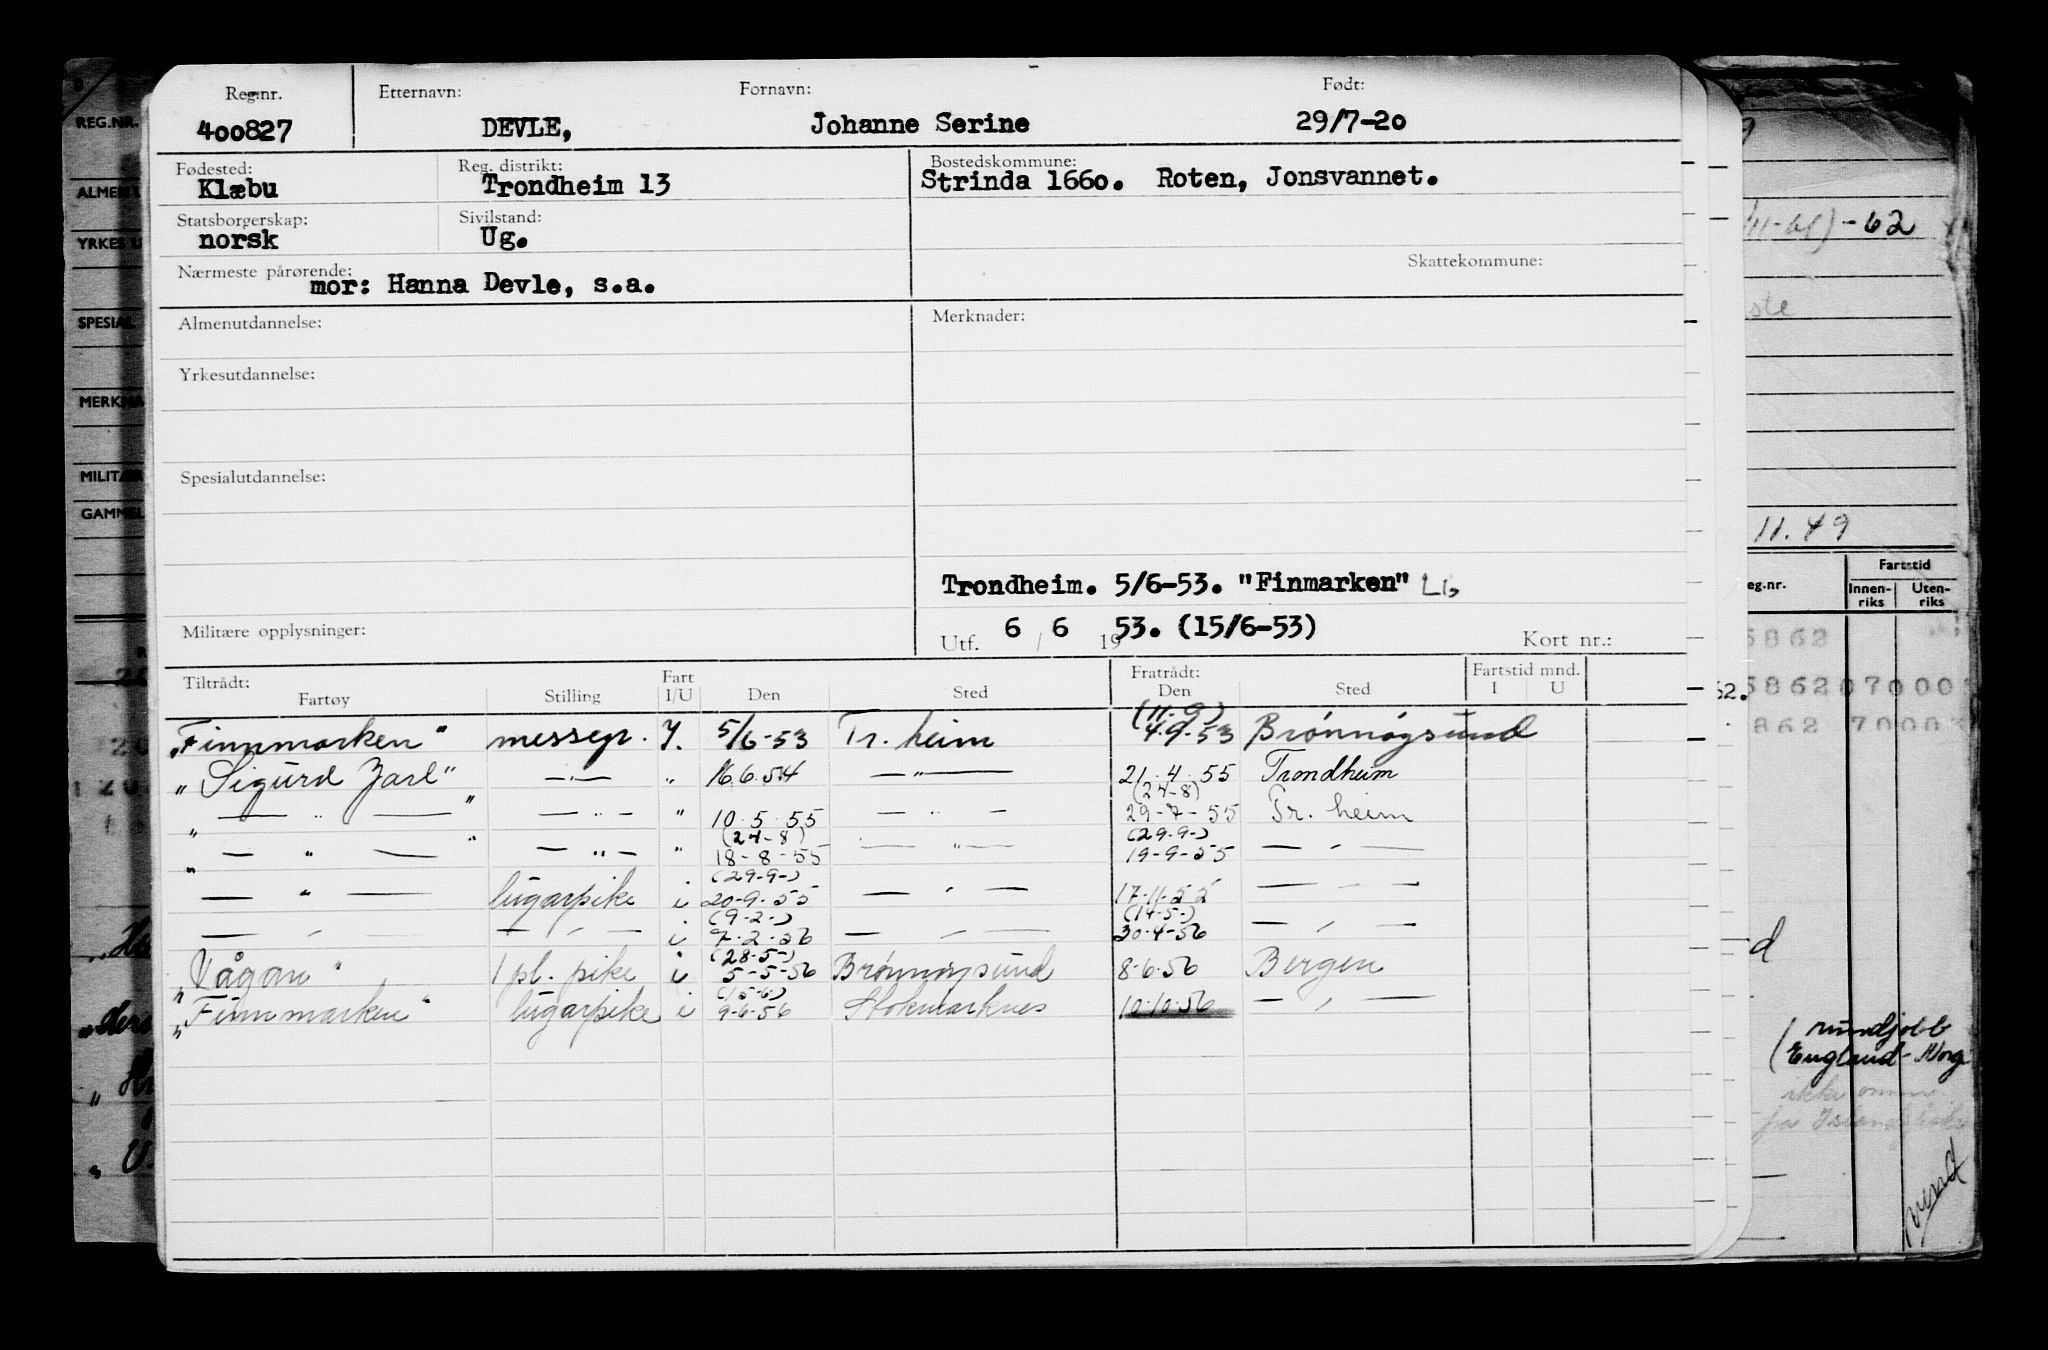 Reg.nr. Etternavn: Fornavn: Født:
400827 DEVLE, Johanne Serine 29/7-20
Fødested: Reg. distrikt: Bostedskommune:
Klæbu Trondheim 13 Strinda 1660. Roten, Jonsvannet.
Statsborgerskap: Sivilstand:
norsk Ug.
Nærmeste pårørende: Skattekommune:
mor: Hanna Devle, s.a.
Almenutdannelse: Merknader:
Yrkesutdannelse:
Spesialutdannelse:
Trondheim. 5/6-53. "Finmarken"
Militære opplysninger: Utf. 6 / 6 1953. (15/6-53) Kort nr.:
Tiltrådt: Fratrådt: Fartstid mnd.
Fartøy Stilling Fart I/U Den Sted Den Sted I U
(11-9)
„Finnmarken" messegr. I. 5/6-53 Tr. heim 4.9.53 Brónnóysund
„Sigurd Jarl" —"— " 16.6.54 —"— 21.4.55 Trondheim
(24-8)
„ — " — " — " — " 10.5.55 — " — 29-7-55 Tr. heim
(24-8) (29.9-)
„ — " — " — " — " 18-8-55 — " — 19-9-55 — " —
(29-9-)
— " — lugarpike i 20-9-55 — " — 17.11.55 — " —
(9-2-) (14-5-)
— " — — " — i 7.2.56 — " — 30-4-56 — " —
(28-5-)
„Vågan" 1 pl. pike i 5-5-56 Brónnóysund 8-6.56 Bergen
(15-6)
„Finnmarken" lugarpike i 9-6-56 Stokmarknes 10.10.56 — " —
REG.NR.
YRKES
SPESIAL
11.49
Fartstid
Innen-riks Uten-riks
5862
58620700
862 7000
rundjobb
England-Norge